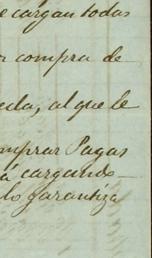 e cargan todas
compra de
cula, al que le
mprar Pagas
a cargando
lo garantiza